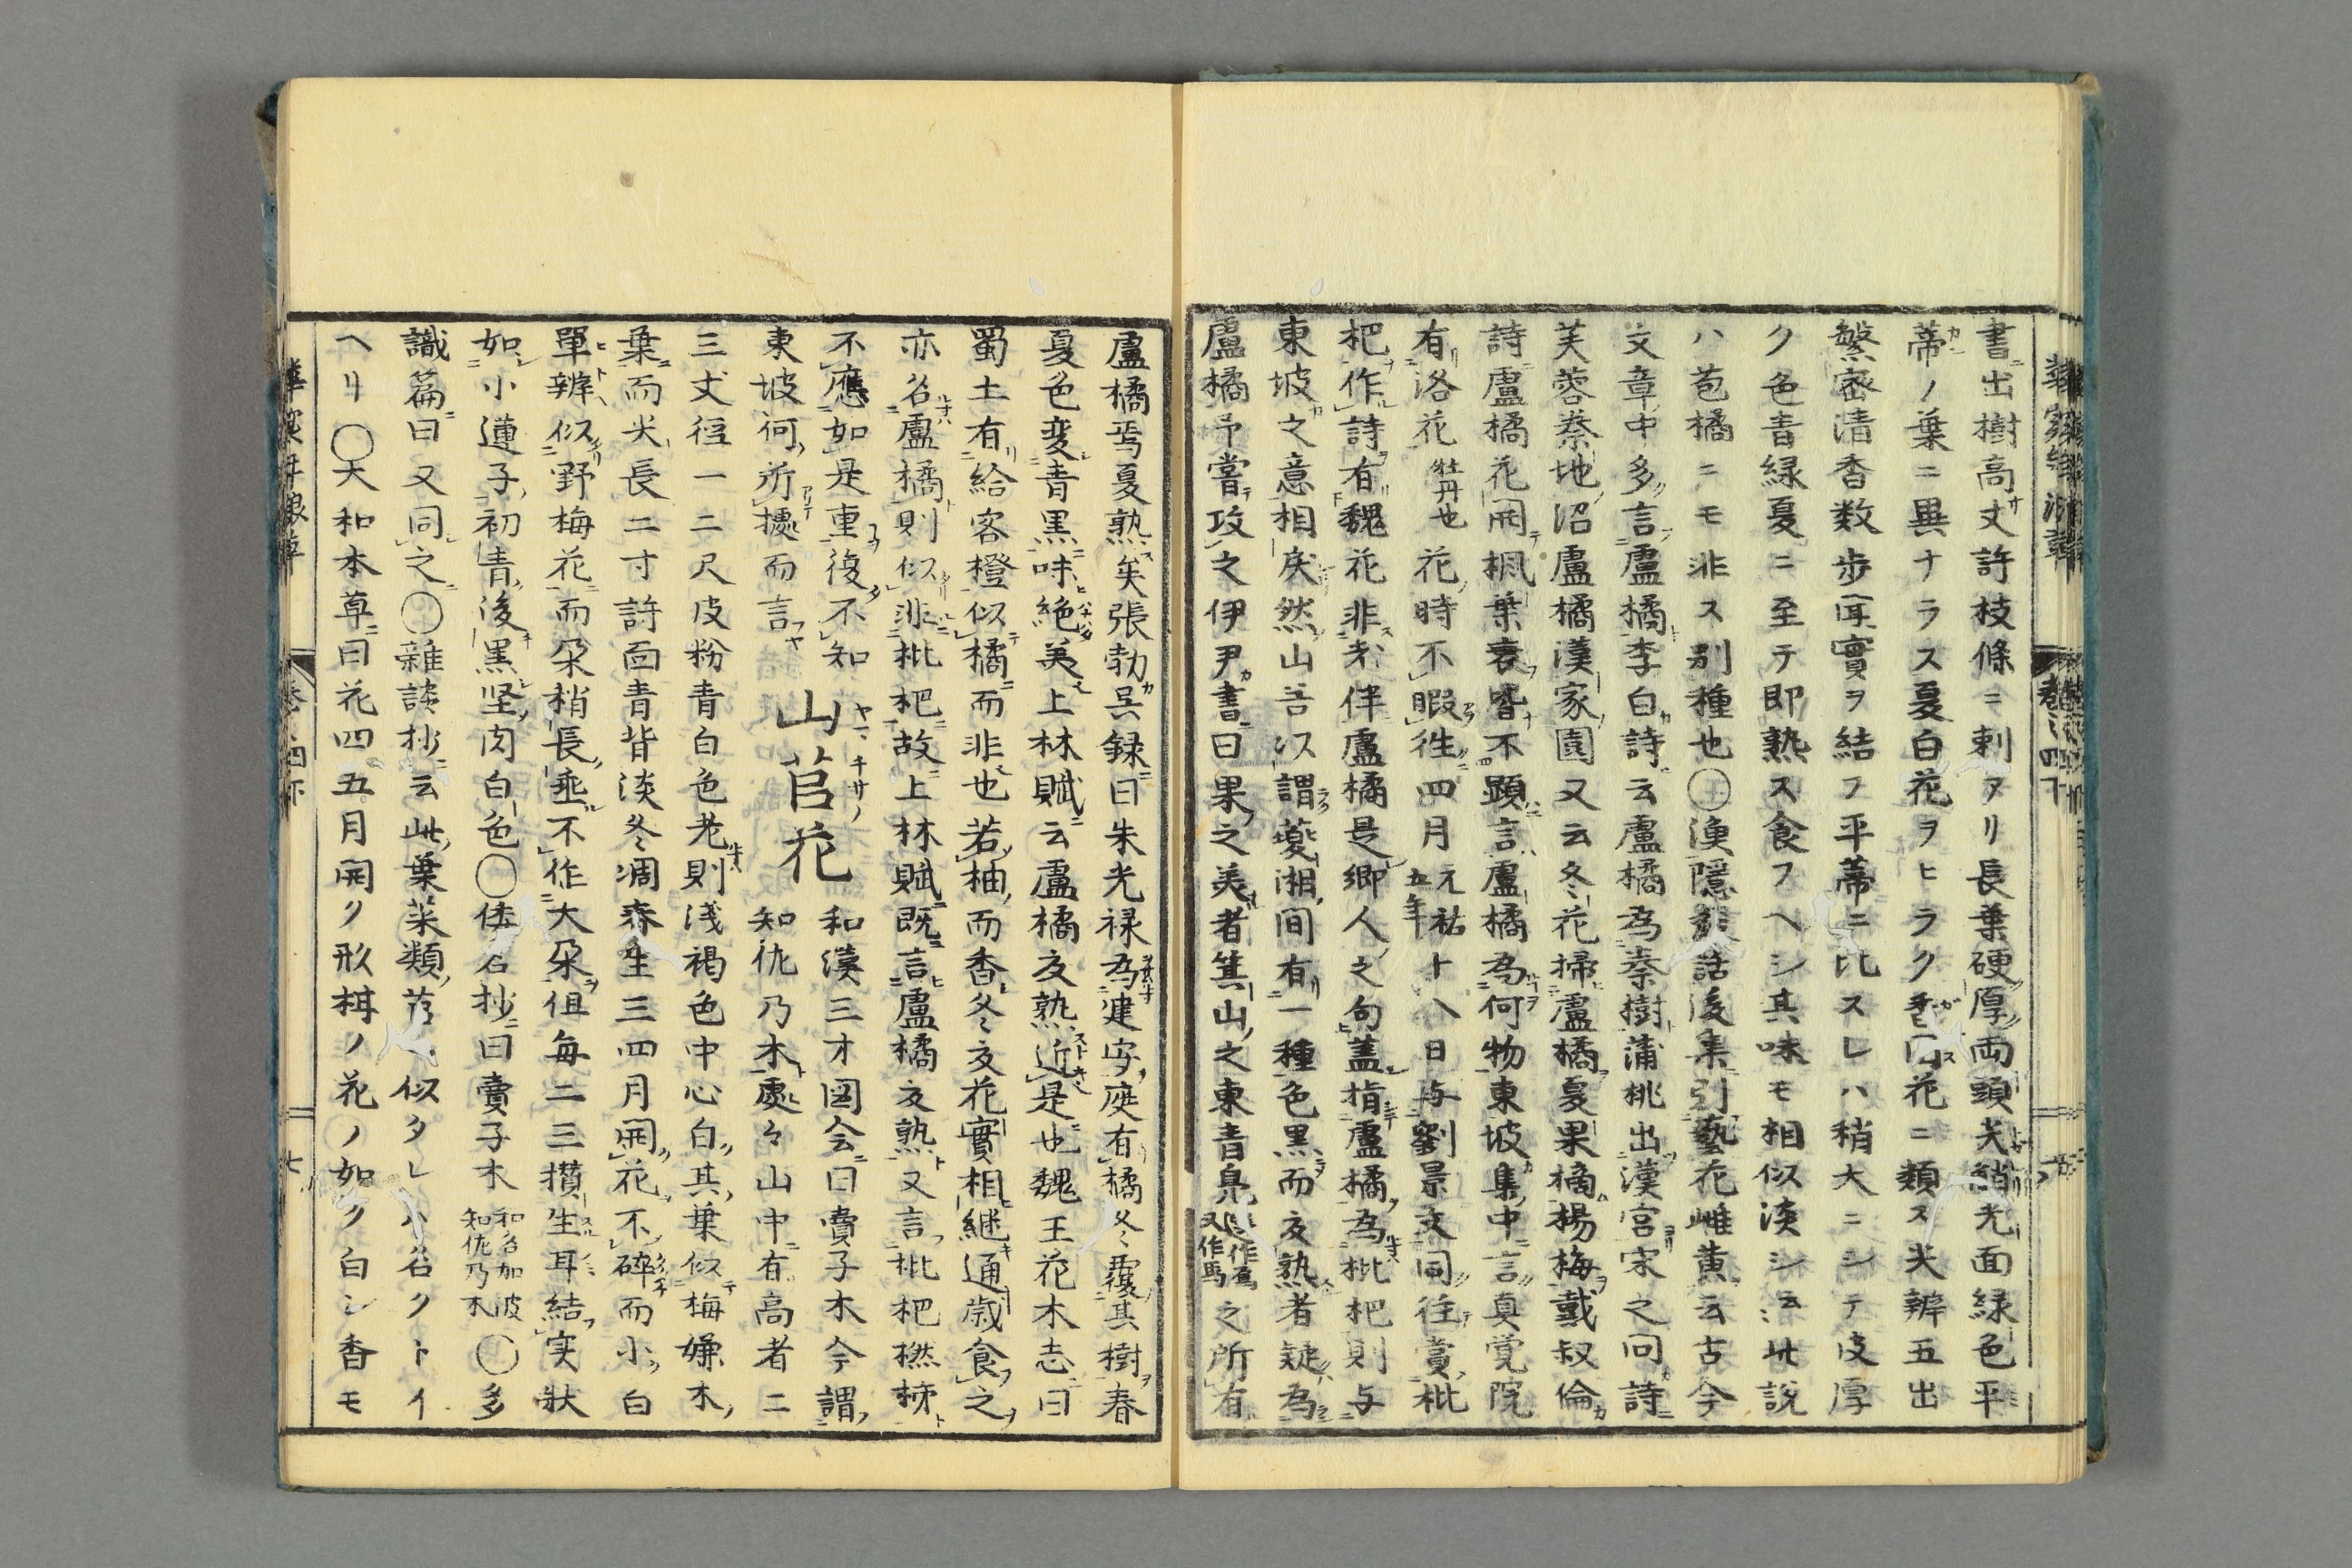 書出樹高丈許枝條ニ刺アリ長葉硬厚両頭尖綃光面緑色平
蒂ノ葉ニ異ナラス夏白花ヲヒラク香同花ニ類ス尖辨五出
繁密清香数歩ニ聞實ヲ結フ平蒂ニ比スレハ稍大ニシテ皮厚
ク色青緑夏ニ至テ即熟ス食フヘシ其味モ相似淡シ云此説
ハ苞橘ニモ非ス別種也〇漁隱叢話後集引藝花雌黄云古今
文章中多言盧橘李白詩云盧橘為秦樹蒲桃出漢宮宋之問詩
芙蓉秦地沼盧橘漢家園又云冬花掃盧橘夏果摘楊梅戴叔倫
詩盧橘花開楓葉衰皆不顕言盧橘為何物東坡集中言真覚院
有洛花牡丹也花時不暇往四月元祐五年十八日与劉景文同往賞枇
杷作詩有魏花非老伴盧橘是郷人之句蓋指盧橘為枇杷則与
東坡之意相戻然山谷以謂夔湘間有一種色黒而夏熟者疑為
盧橘予嘗攷之伊尹書曰果之美者箕山之東青鳧之所有
盧橘焉夏熟矣張勃呉録曰朱光禄為建安庭有橘冬覆其樹春
夏色変青黒味絶美上林賦云盧橘夏熟近是也魏王花木志曰
蜀土有給客橙似橘而非也若柚而香冬夏花實相継通歳食之
亦名盧橘則似非枇杷故上林賦既言盧橘夏熟又言枇杷橪柿
不應如是重復不知
東坡何所據而言
山苢花
ヤマヂサノ
和漢三才図会曰賣子木今謂
知佐乃木處々山中有高者二
三丈徑一二尺皮粉青白色老則浅褐色中心白其葉似梅嫌木
葉而尖長二寸許面青背淡冬凋春生三四月開花不碎而小白
單辨似野梅花而朶稍長垂不作大朶但毎二三攢生耳結実状
如小蓮子初青後黒堅肉白色〇倭名抄曰賣子木和名加波知佐乃木〇多
識篇曰又同之〇雑談抄云此葉菜類苣似タレハ名クトイ
ヘリ〇大和本草曰花四五月開ク形楫ノ花ノ如ク白シ香モ
巻之四下
七